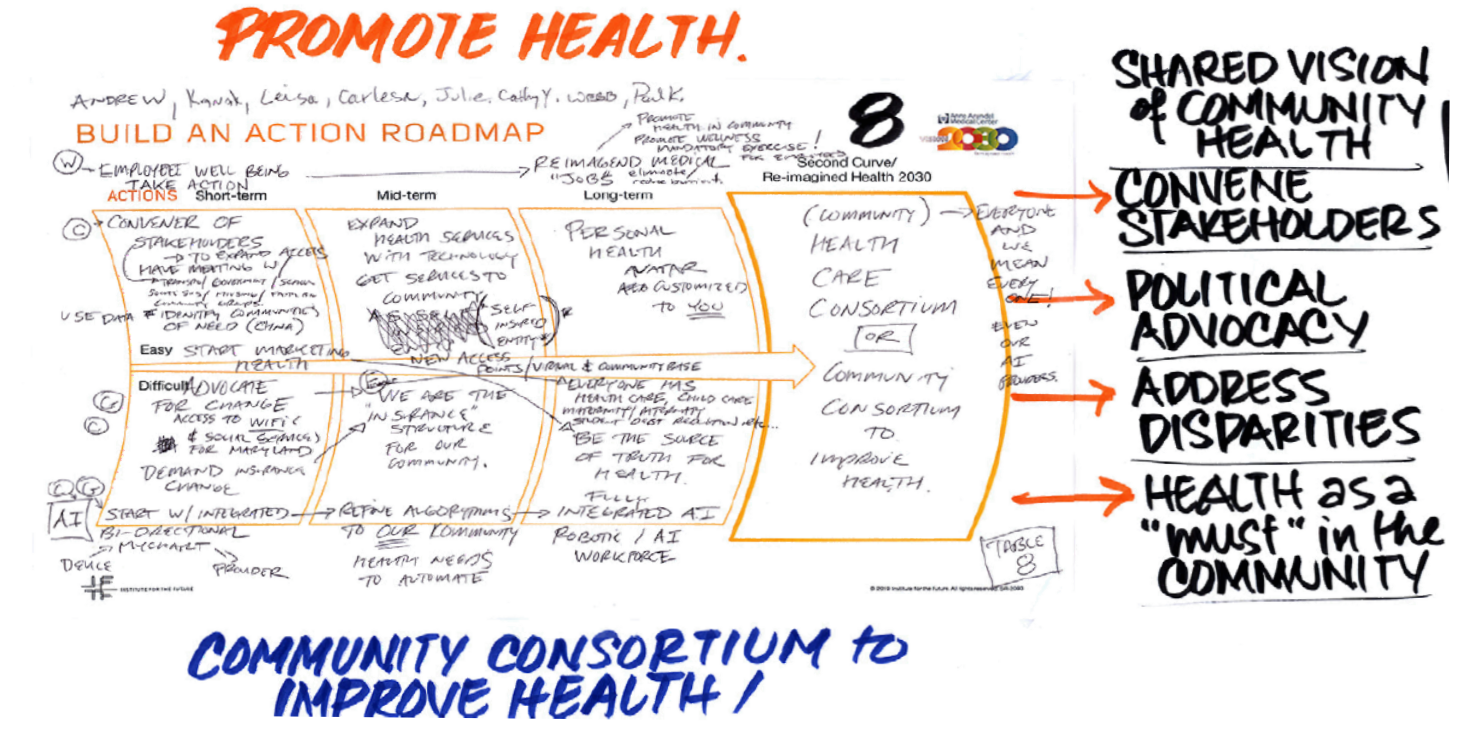 PROMOTE HEALTH.
ANDREW, Kanak, Leisa, Carlesa, Julie, Cathy Y. WEBB, Paul K.
BUILD AN ACTION ROADMAP
PROMOTE
HEALTH IN COMMUNITY
PROMOTE WELLNESS
MANDATORY EXERCISE!
FOR
8
Anne Arundel
Medical Center
VISION 2030
W
EMPLOYEE WELL BEING
TAKE ACTION
REIMAGEND MEDICAL
"JOBS" eliminate/
Second Curve/
Re-imagined Health 2030
ACTIONS Short-term
Mid-term
Long-term
C
CONVENER OF
STAKEHOLDERS
TO EXPAND ACCESS
HAVE MEETING W/
TRANSIT/GOVERNMENT/SCHOOL
COMMUNITY GROUPS
USE DATA IDENTIFY COMMUNITIES
OF NEED (CHNA)
EXPAND
HEALTH SERVICES
WITH TECHNOLOGY
GET SERVICES TO
COMMUNITY
(SELF
INSURED
ENTITY)
NEW ACCESS
POINTS/VIRTUAL & COMMUNITY BASE
PERSONAL
HEALTH
AVATAR
CUSTOMIZED
TO YOU
(COMMUNITY)
HEALTH
CARE
CONSORTIUM
OR
COMMUNITY
CONSORTIUM
TO
IMPROVE
HEALTH.
EVERYONE
AND
WE
MEAN
EVERY
ONE!
EVEN
OUR
AI
Easy START MARKETING
HEALTH
Difficult ADVOCATE
FOR CHANGE
ACCESS TO WIFI
& SOCIAL SERVICES)
FOR MARYLAND
DEMAND INSURANCE
CHANGE
G
C
WE ARE THE
"INSURANCE"
STRUCTURE
FOR OUR
COMMUNITY.
EVERYONE HAS
HEALTH CARE, CHILD CARE
MATERNITY/PATERNITY
STUDENT DEBT REDUCTION ETC...
BE THE SOURCE
OF TRUTH FOR
HEALTH.
G
AI
START W/ INTEGRATED
BI-DIRECTIONAL
MYCHART
DEVICE
PROVIDER
REFINE ALGORYTHMS
TO OUR COMMUNITY
HEALTH NEEDS
TO AUTOMATE
FULLY
INTEGRATED AI
ROBOTIC / AI
WORKFORCE
TABLE
8
INSTITUTE FOR THE FUTURE
© 2019 Institute for the Future. All rights reserved.
SHARED VISION
of COMMUNITY
HEALTH
CONVENE
STAKEHOLDERS
POLITICAL
ADVOCACY
ADDRESS
DISPARITIES
HEALTH as a
"must" in the
COMMUNITY
COMMUNITY CONSORTIUM to
IMPROVE HEALTH!